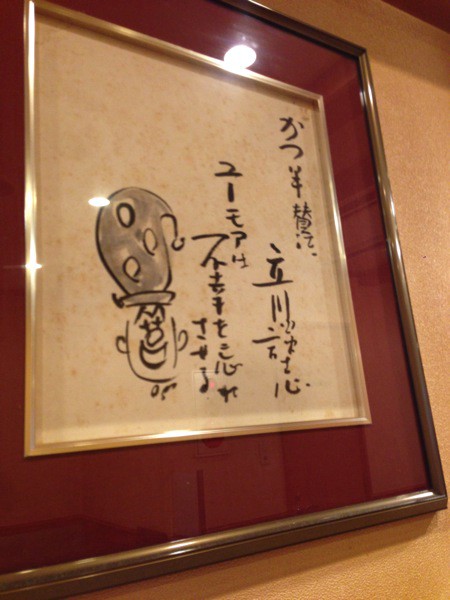 かつ半賛江
立川談志
ユーモアは
不幸を忘れ
させる